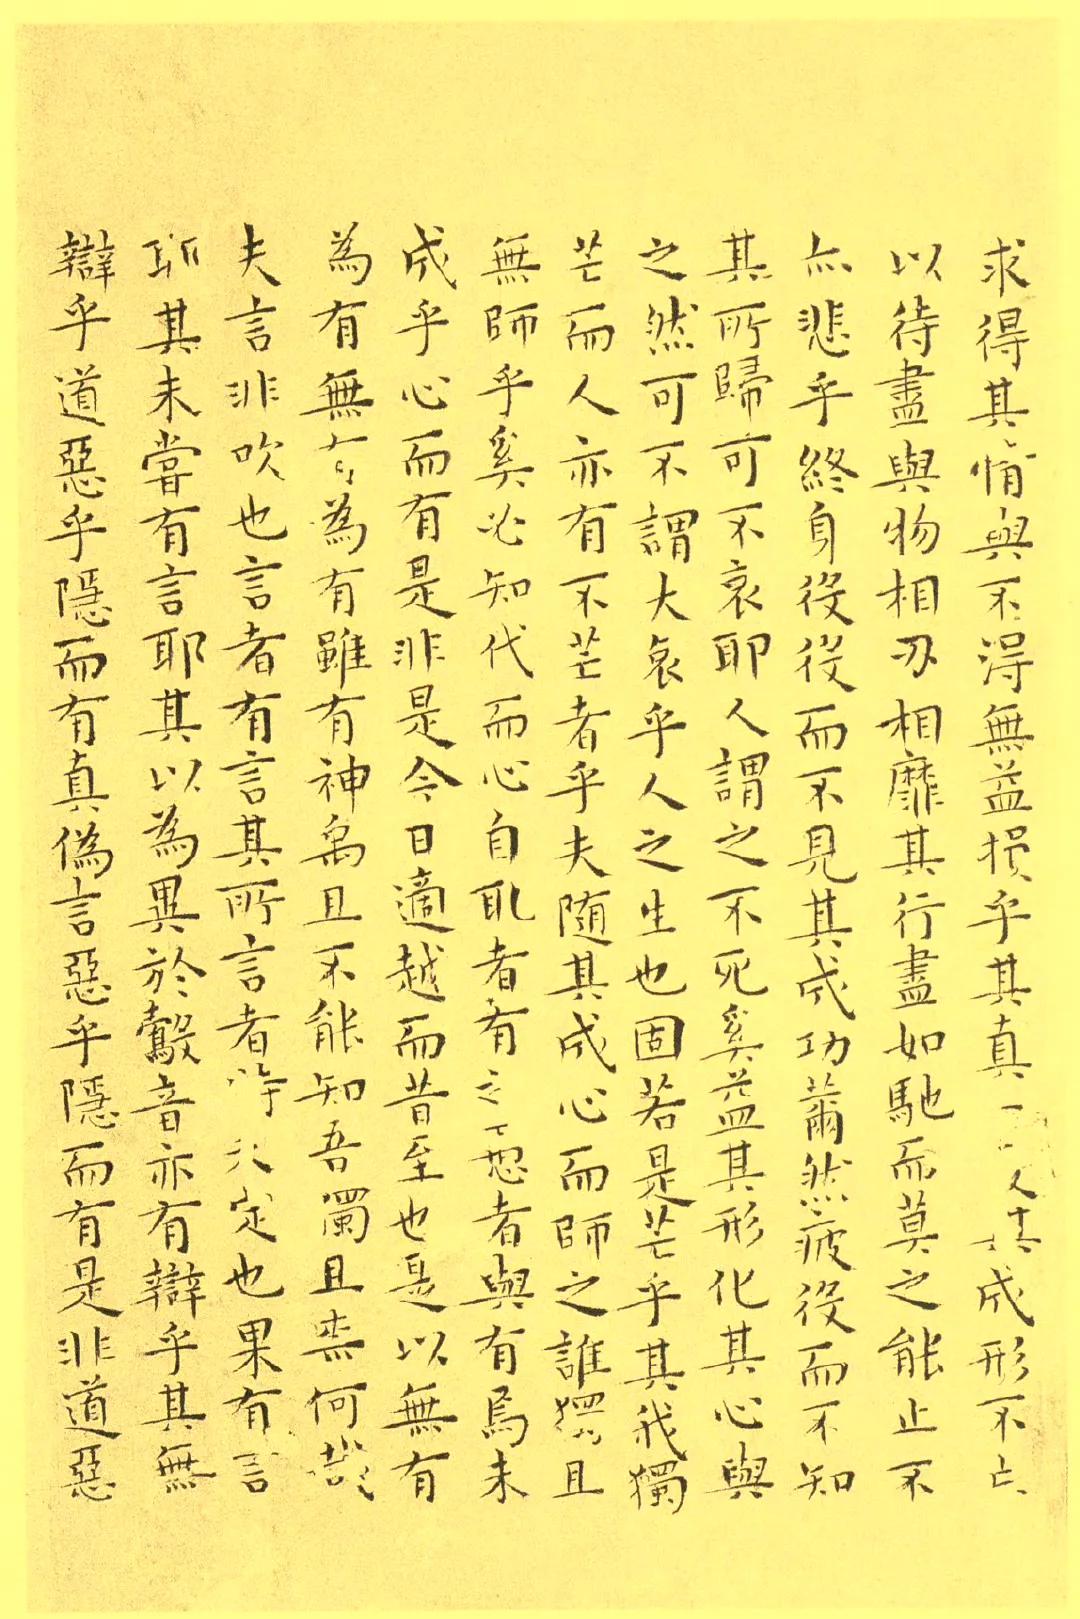 求得其情與不得無益損乎其真一受其成形不亡
以待盡與物相刃相靡其行盡如馳而莫之能止不
亦悲乎終身役役而不見其成功薾然疲役而不知
其所歸可不哀耶人謂之不死奚益其形化其心與
之然可不謂大哀乎人之生也固若是芒乎其我獨
芒而人亦有不芒者乎夫随其成心而師之誰獨且
無師乎奚必知代而心自取者有之愚者與有焉未
成乎心而有是非是今日適越而昔至也是以無有
為有無有為有雖有神禹且不能知吾獨且柰何哉
夫言非吹也言者有言其所言者特未定也果有言
耶其未嘗有言耶其以為異於鷇音亦有辯乎其無
辯乎道惡乎隱而有真偽言惡乎隱而有是非道惡